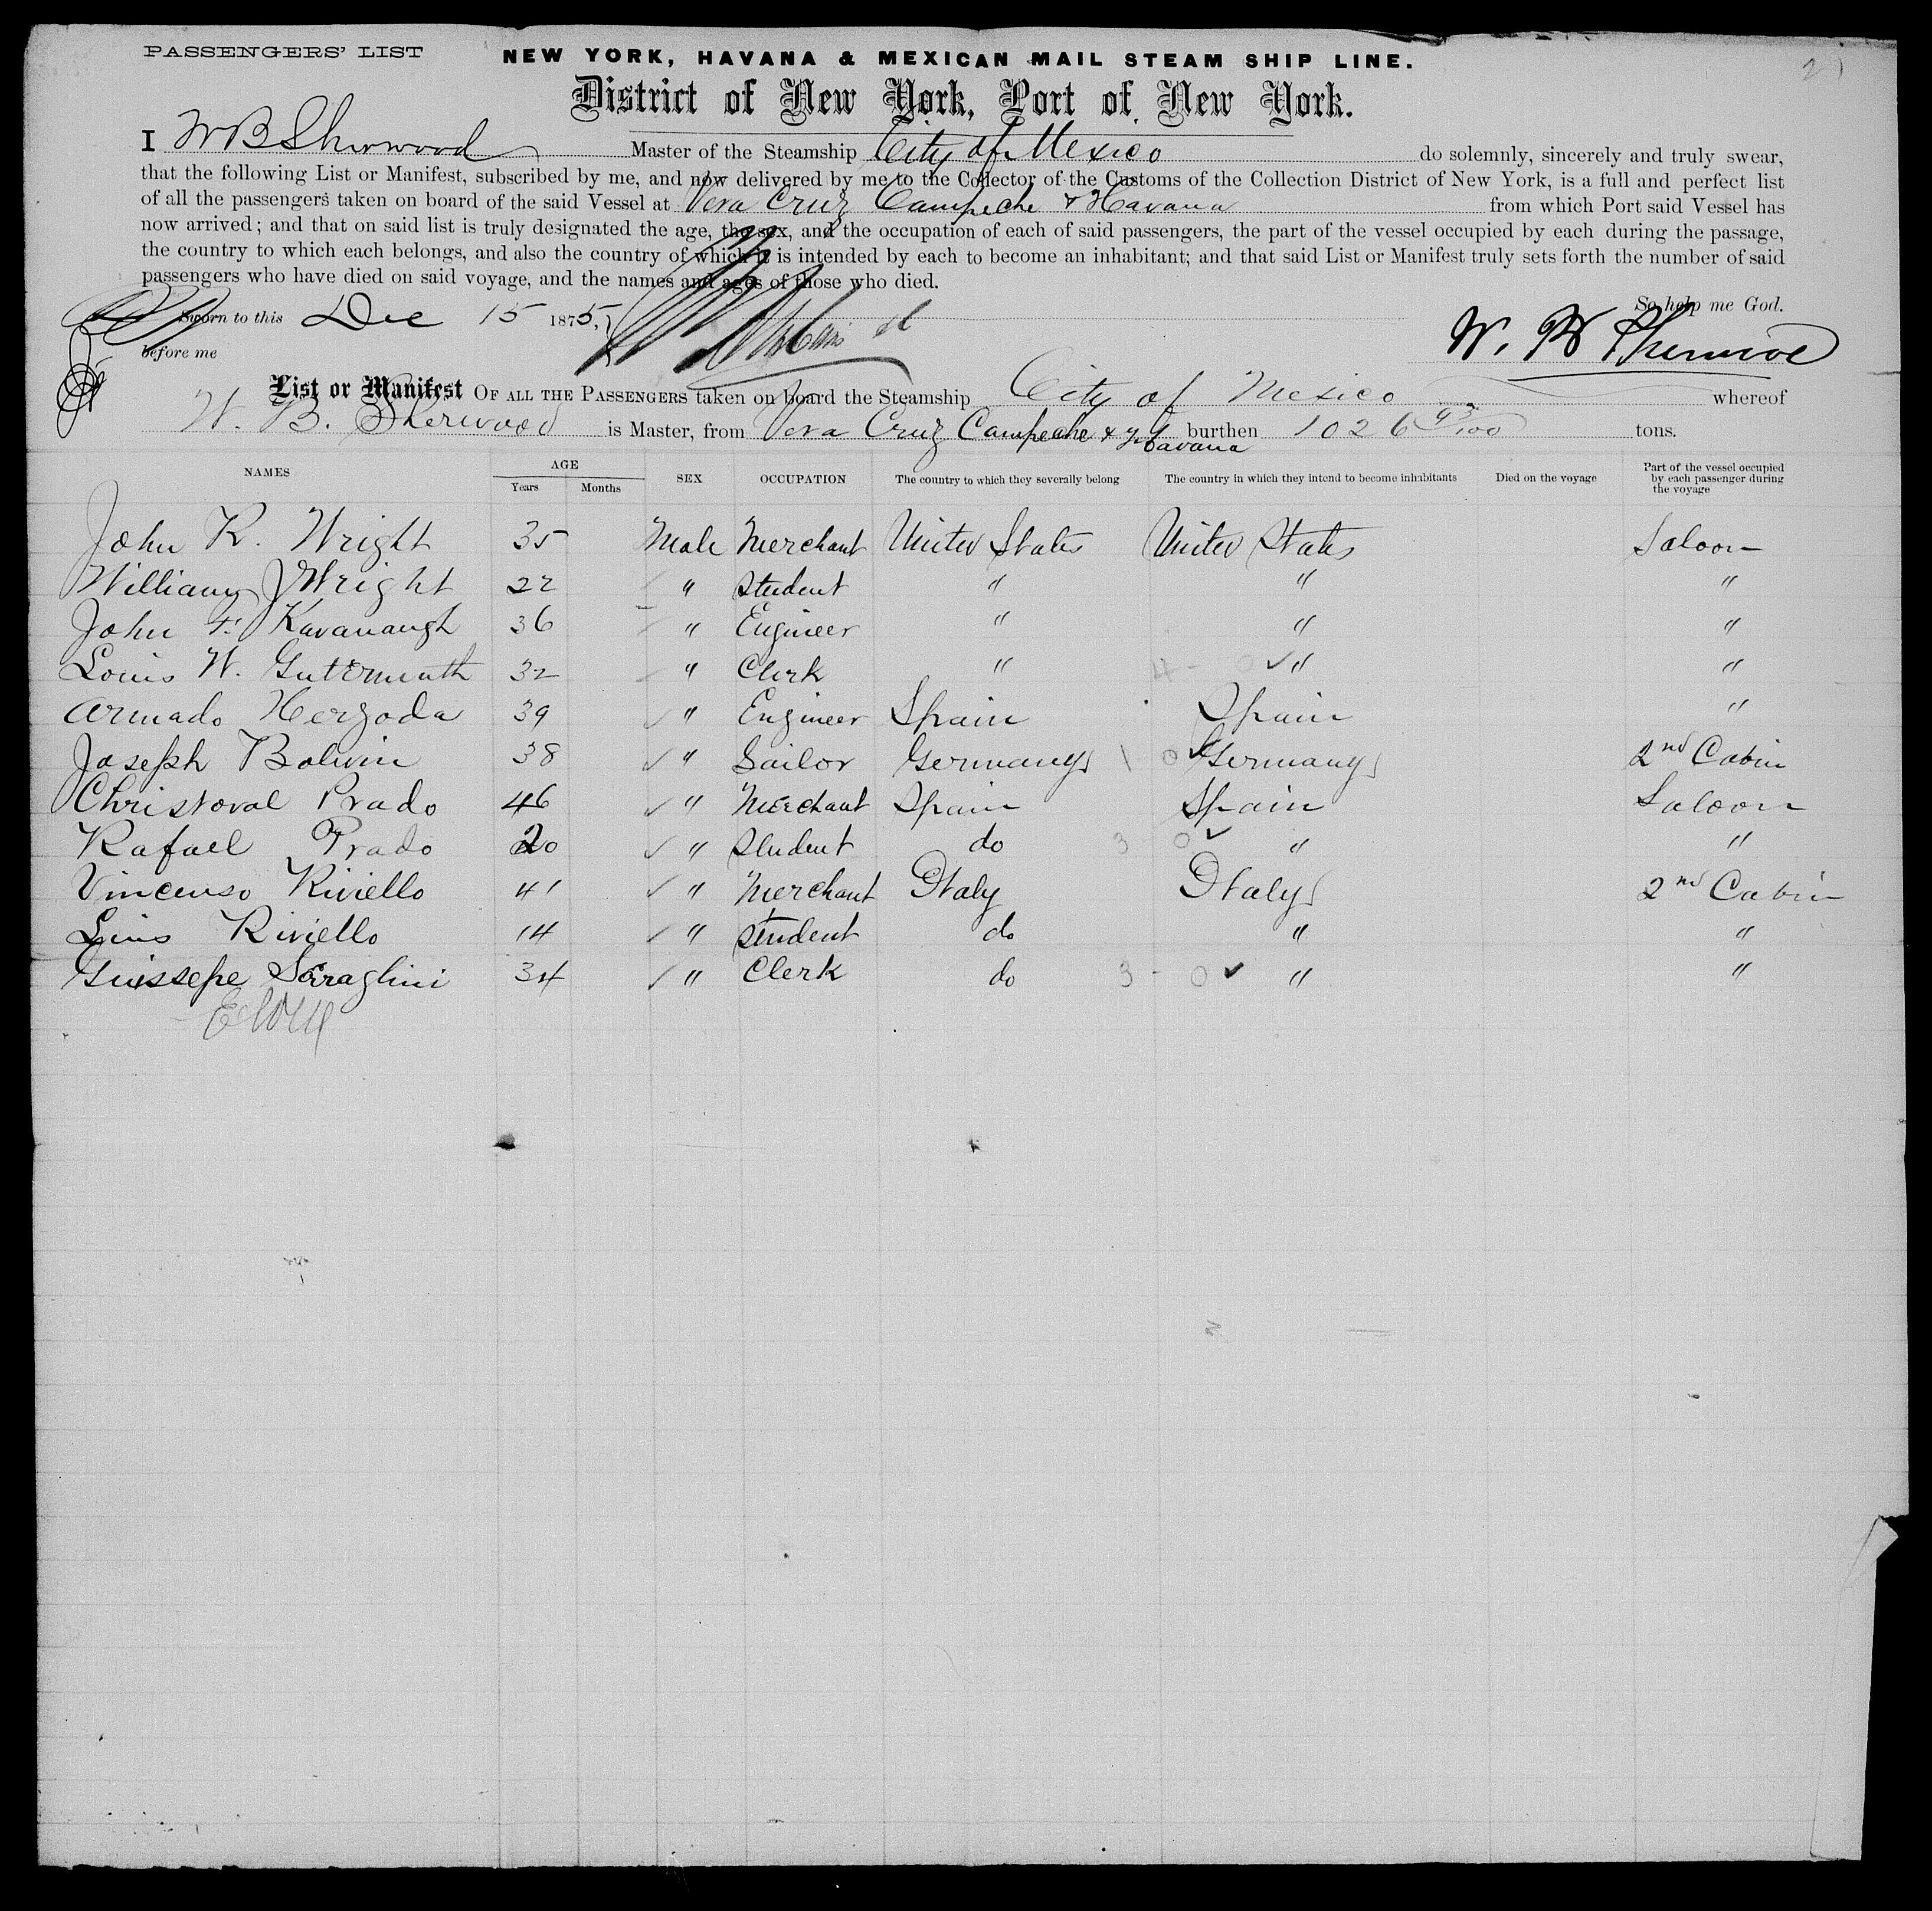 PASSENGERS' LIST
NEW YORK, HAVANA & MEXICAN MAIL STEAM SHIP LINE.
District of New York, Port of New York.
I W B Sherwood Master of the Steamship City of Mexico do solemnly, sincerely and truly swear,
that the following List or Manifest, subscribed by me, and now delivered by me to the Collector of the Customs of the Collection District of New York, is a full and perfect list
of all the passengers taken on board of the said Vessel at Vera Cruz Campeche & Havana from which Port said Vessel has
now arrived; and that on said list is truly designated the age, the sex, and the occupation of each of said passengers, the part of the vessel occupied by each during the passage,
the country to which each belongs, and also the country of which it is intended by each to become an inhabitant; and that said List or Manifest truly sets forth the number of said
passengers who have died on said voyage, and the names and ages of those who died.
So help me God.
Sworn to this Dec 15 1875,
before me
W. B Sherwood
List or Manifest OF ALL THE PASSENGERS taken on board the Steamship City of Mexico whereof
W. B. Sherwood is Master, from Vera Cruz Campeche & Havana burthen 1026 93/100 tons.
NAMES AGE Years Months SEX OCCUPATION The country to which they severally belong The country in which they intend to become inhabitants Died on the voyage Part of the vessel occupied by each passenger during the voyage
John R. Wright 35 Male Merchant United States United States Saloon
William J Wright 22 " Student " " "
John F. Kavanaugh 36 " Engineer " " "
Louis W. Gutermuth 32 " Clerk " 4 - 0 ✓ " "
Armado Hergoda 39 ✓ " Engineer Spain Spain "
Joseph Bolivin 38 ✓ " Sailor Germany 1 0 ✓ Germany 2nd Cabin
Christoval Prado 46 ✓ " Merchant Spain Spain Saloon
Rafael Prado 20 ✓ " Student do 3 0 ✓ " "
Vincenso Riviello 41 ✓ " Merchant Italy Italy 2nd Cabin
Luis Riviello 14 ✓ " Student do " "
Guissepe Saraghini 34 ✓ " Clerk do 3 - 0 ✓ " "